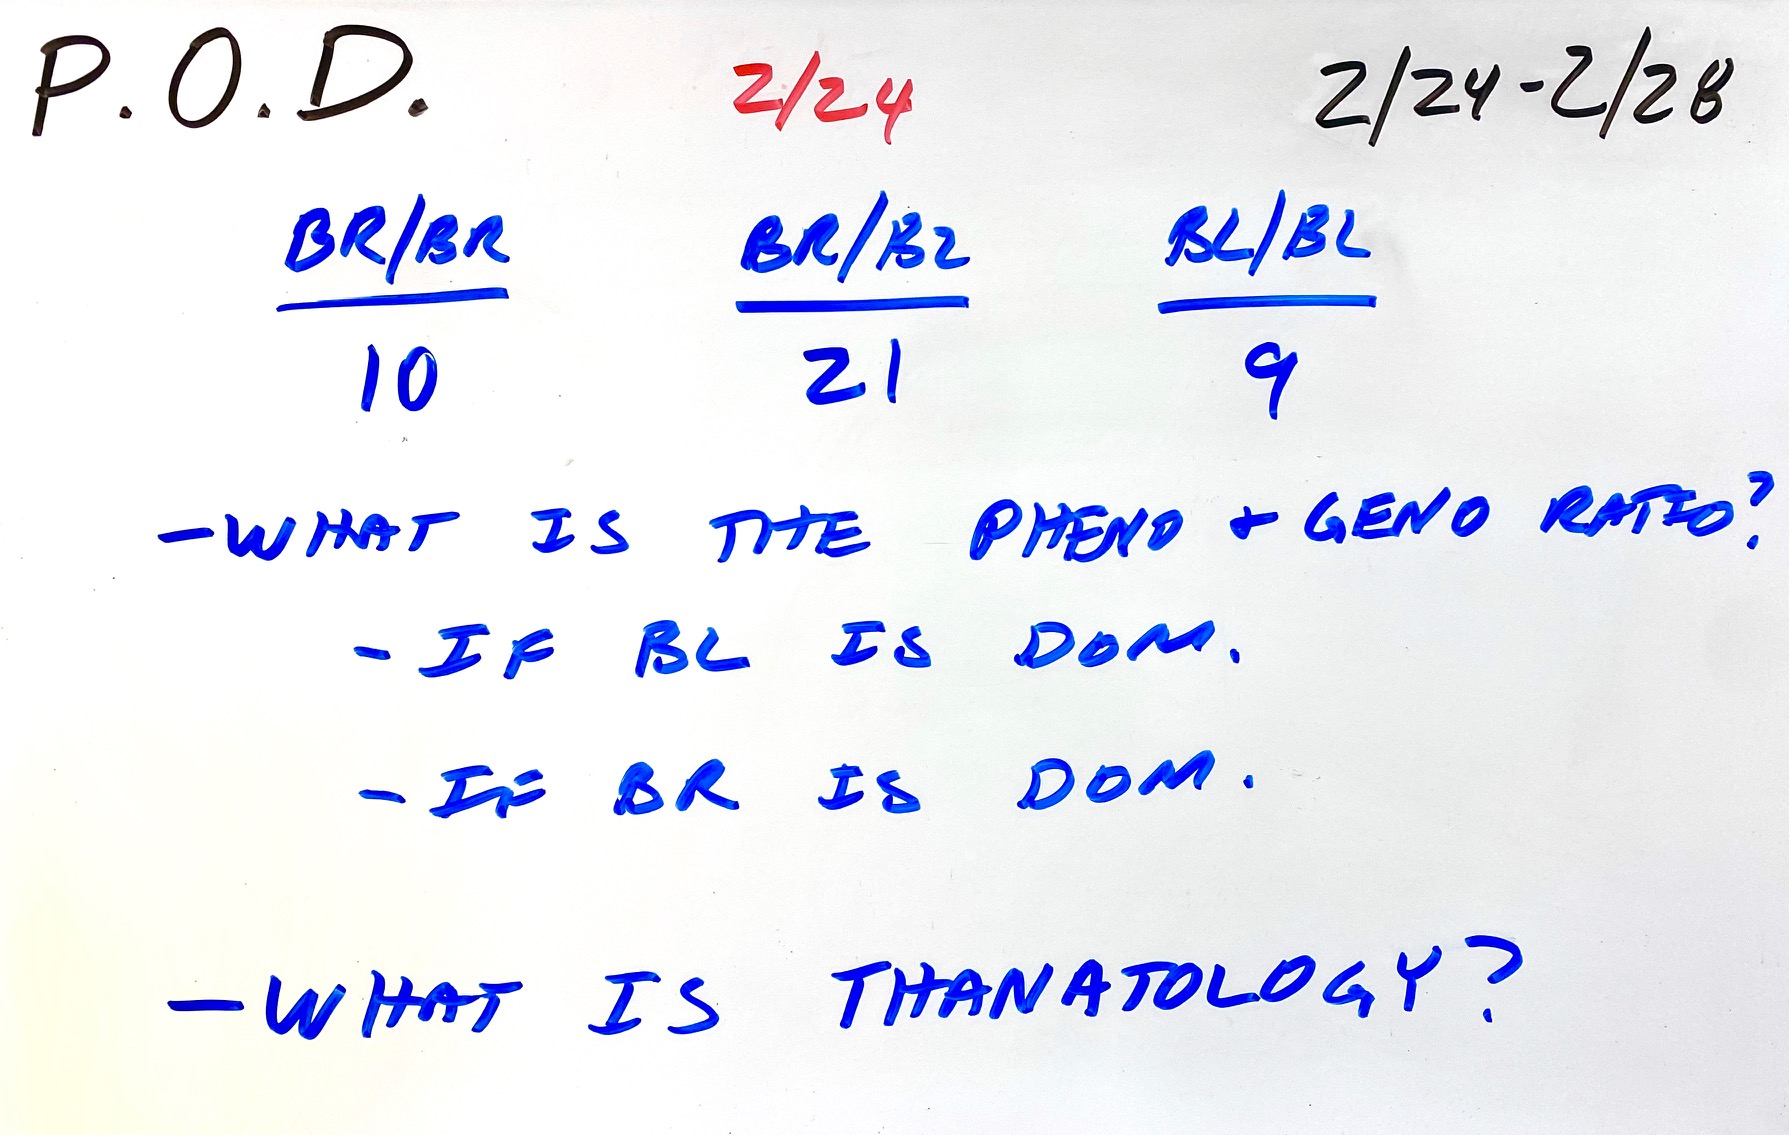 P.O.D. 2/24 2/24-2/28
BR/BR BR/BL BL/BL
10 21 9
-WHAT IS THE PHENO + GENO RATIO?
-IF BL IS DOM.
-IF BR IS DOM.
-WHAT IS THANATOLOGY?